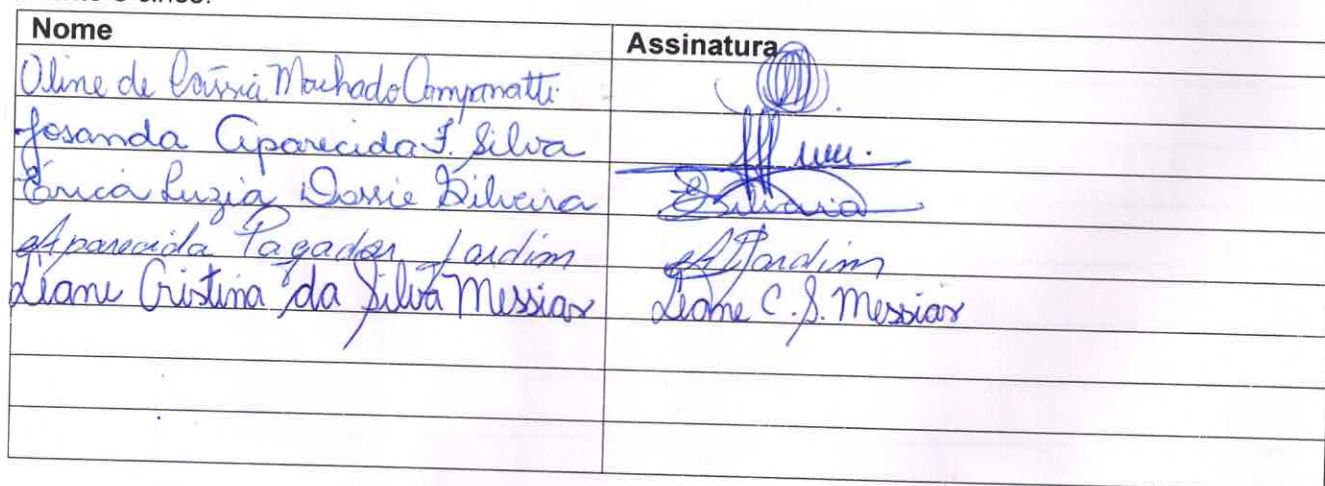 e cinco.
Nome Assinatura
Aline de Cássia Machado Companatti.
Josanda Aparecida F. Silva
Érica Luzia Silveira
Aparecida Pagador Jardim APJardim
Liane Cristina da Silva Messias Liane C. S. Messias